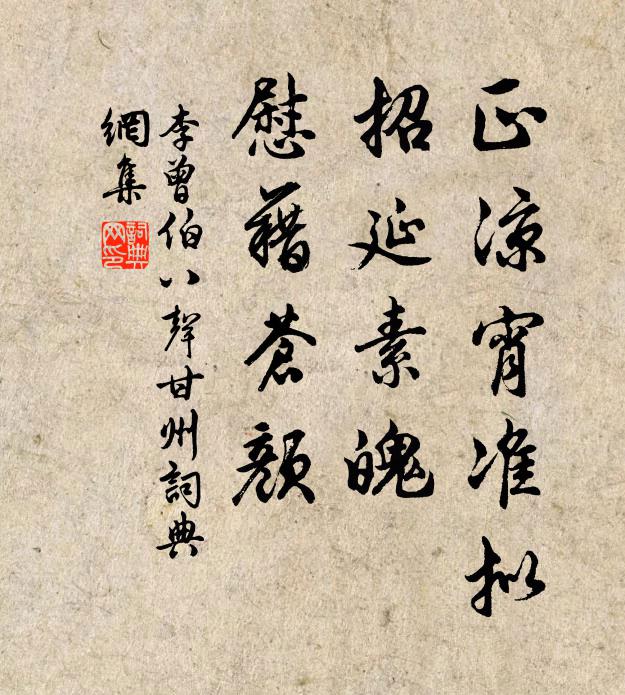 正凉宵准拟
招延素魄
慰藉苍颜
李曾伯八聲甘州詞典
網集
詞典网印